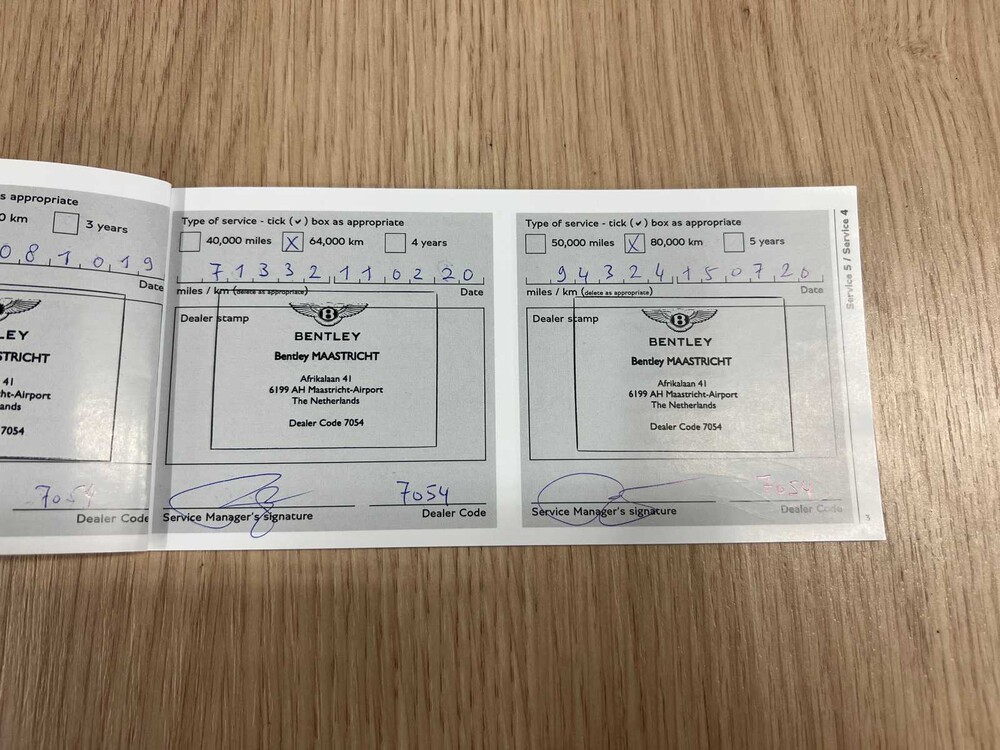 s appropriate
0 km 3 years
081019
Date
LEY
STRICHT
41
ht-Airport
ands
7054
7054
Dealer Code
Type of service - tick (✓) box as appropriate
40,000 miles X 64,000 km 4 years
71332 110220
miles / km (delete as appropriate) Date
Dealer stamp
B
BENTLEY
Bentley MAASTRICHT
Afrikalaan 41
6199 AH Maastricht-Airport
The Netherlands
Dealer Code 7054
7054
Service Manager's signature Dealer Code
Type of service - tick (✓) box as appropriate
50,000 miles X 80,000 km 5 years
94324 150720
miles / km (delete as appropriate) Date
Dealer stamp
B
BENTLEY
Bentley MAASTRICHT
Afrikalaan 41
6199 AH Maastricht-Airport
The Netherlands
Dealer Code 7054
7054
Service Manager's signature Dealer Code
Service 5 / Service 4
3